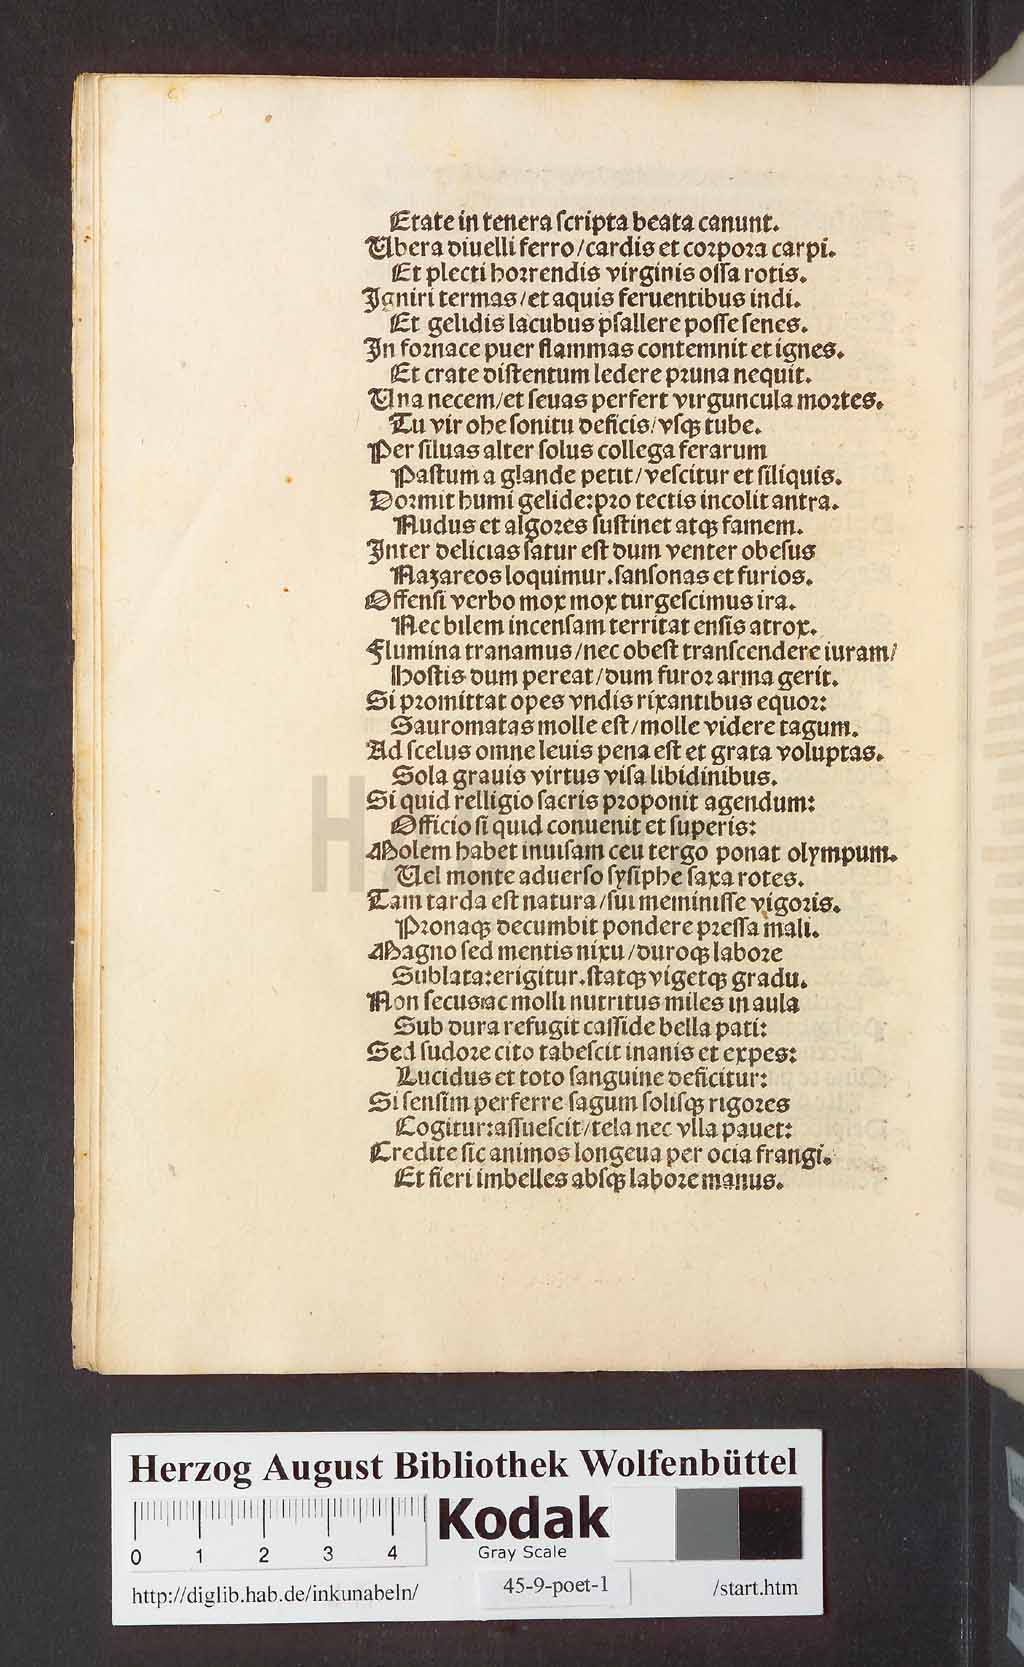 Etate in tenera ſcripta beata canunt.
Ubera diuelli ferro/cardis et corpora carpi.
Et plecti horrendis virginis oſſa rotis.
Igniri termas/et aquis feruentibus indi.
Et gelidis lacubus pſallere poſſe ſenes.
In fornace puer flammas contemnit et ignes.
Et crate diſtentum ledere pruna nequit.
Una necem/et ſeuas perfert virguncula mortes.
Tu vir ohe ſonitu deficis/vſqꝫ tube.
Per ſiluas alter ſolus collega ferarum
Paſtum a glande petit/veſcitur et ſiliquis.
Dormit humi gelide:pro tectis incolit antra.
Nudus et algores ſuſtinet atqꝫ famem.
Inter delicias ſatur eſt dum venter obeſus
Nazareos loquimur.ſanſonas et furios.
Offenſi verbo mox mox turgeſcimus ira.
Nec bilem incenſam territat enſis atrox.
Flumina tranamus/nec obeſt tranſcendere iuram/
Hoſtis dum pereat/dum furor arma gerit.
Si promittat opes vndis rixantibus equor:
Sauromatas molle eſt/molle videre tagum.
Ad ſcelus omne leuis pena eſt et grata voluptas.
Sola grauis virtus viſa libidinibus.
Si quid relligio ſacris proponit agendum:
Officio ſi quid conuenit et ſuperis:
Molem habet inuiſam ceu tergo ponat olympum.
Uel monte aduerſo ſyſiphe ſaxa rotes.
Tam tarda eſt natura/ſui meminiſſe vigoris.
Pronaqꝫ decumbit pondere preſſa mali.
Magno ſed mentis nixu/duroqꝫ labore
Sublata:erigitur.ſtatqꝫ vigetqꝫ gradu.
Non ſecus:ac molli nutritus miles in aula
Sub dura refugit caſſide bella pati:
Sed ſudore cito tabeſcit inanis et expes:
Lucidus et toto ſanguine deficitur:
Si ſenſim perferre ſagum ſoliſqꝫ rigores
Cogitur:aſſueſcit/tela nec vlla pauet:
Credite ſic animos longeua per ocia frangi.
Et fieri imbelles abſqꝫ labore manus.
Herzog August Bibliothek Wolfenbüttel
0 1 2 3 4
Kodak
Gray Scale
http://diglib.hab.de/inkunabeln/ 45-9-poet-1 /start.htm